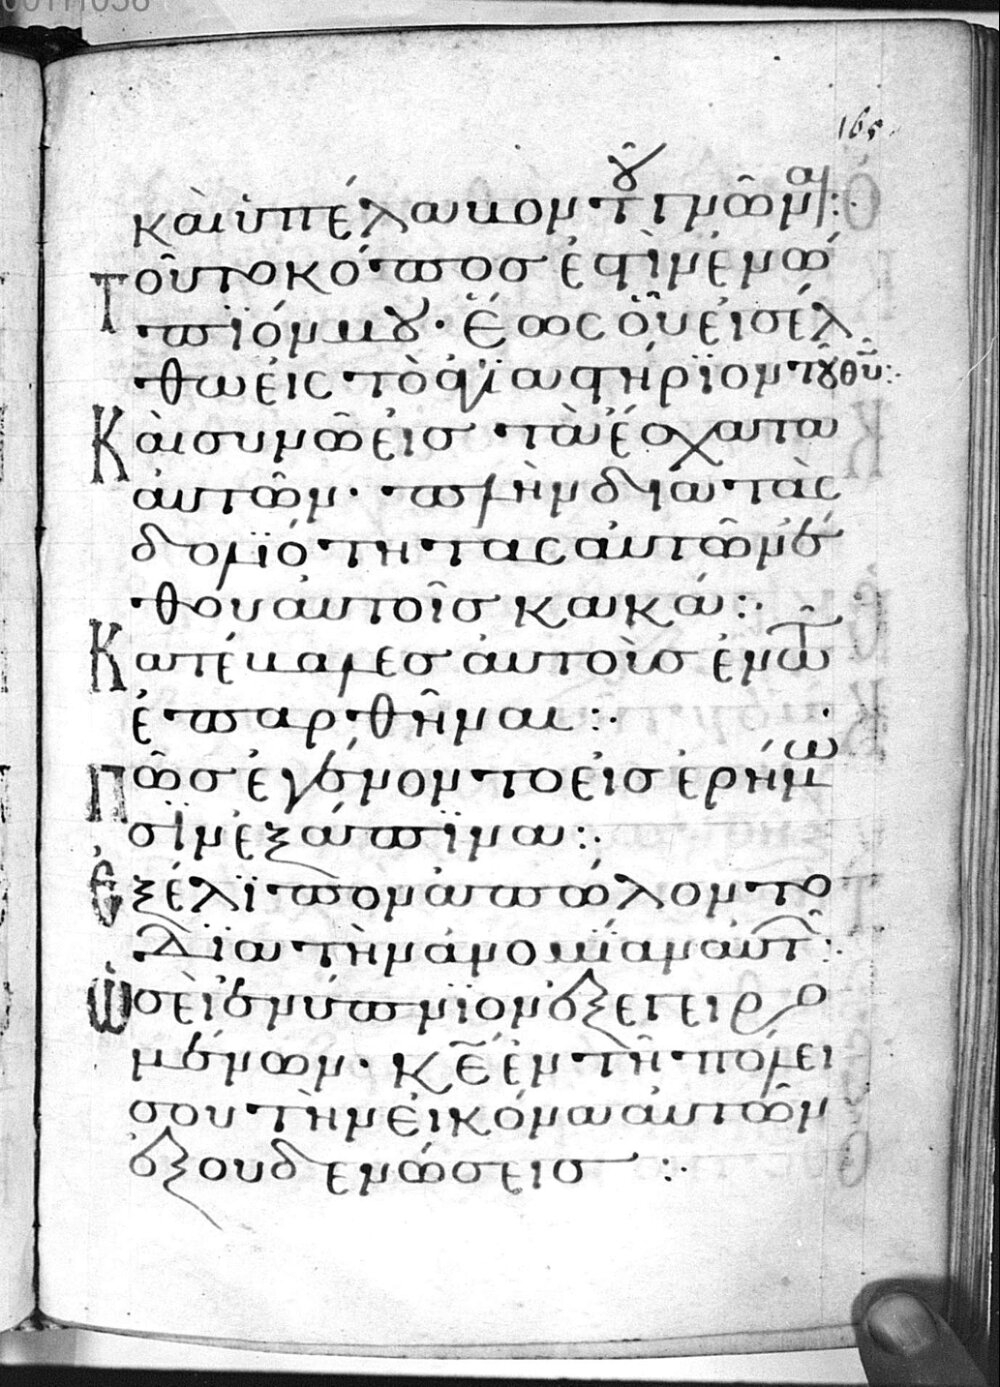 00111038
165
καὶ ὑπέλαβον τοῦ γνῶναι:
τοῦτο κόπος ἐστὶν ἐνώ
πϊόν μου· Ἕως οὗ εἰσέλ
θω εἰς τὸ ἁγϊαστήρϊον τοῦ θῡ:
Καὶ συνῶ εἰς τὰ ἔσχατα
αὐτῶν· πλὴν διὰ τὰς
δολϊότητας αὐτῶν ἔ
θου αὐτοῖς κακά:
Κατέβαλες αὐτοὺς ἐν τῶ
ἐπαρθῆναι:
Πῶς ἐγένοντο εἰς ἐρήμω
σϊν ἐξάπϊνα:
Ἐξέλϊπον ἀπώλοντο
δϊὰ τὴν ἀνομΐαν αὐτῶν:
Ὡσεὶ ἐνύπνϊον ἐξεγειρο
μένων· κ̅ε̅ ἐν τῆ πόλει
σου τὴν εἰκόνα αὐτῶν
ἐξουδενώσεις: